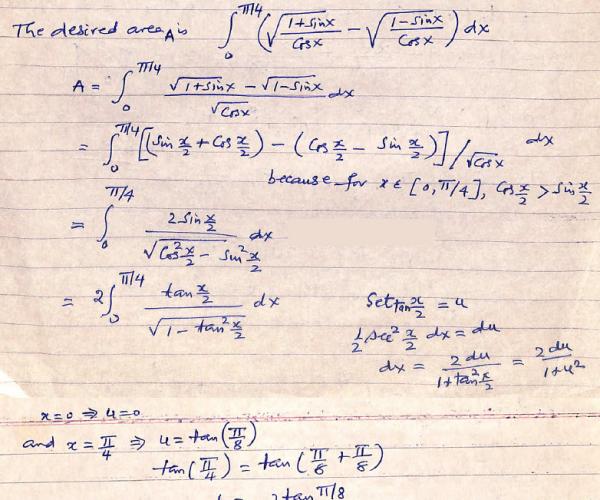 The desired area A is ∫₀^π/4 (√((1+sinx)/Cosx) − √((1−sinx)/Cosx)) dx
A = ∫₀^π/4 (√(1+sinx) − √(1−sinx))/√Cosx dx
= ∫₀^π/4 [(Sin x/2 + Cos x/2) − (Cos x/2 − Sin x/2)] / √Cosx dx
because for x ∈ [0, π/4], Cos x/2 > Sin x/2
= ∫₀^π/4 2 Sin x/2 / √(Cos² x/2 − Sin² x/2) dx
= 2∫₀^π/4 tan x/2 / √(1 − tan² x/2) dx
Set tan x/2 = u
1/2 sec² x/2 dx = du
dx = 2 du/(1+tan² x/2) = 2 du/(1+u²)
x=0 ⇒ u=0
and x = π/4 ⇒ u = tan(π/8)
tan(π/4) = tan(π/8 + π/8)
2 tan π/8